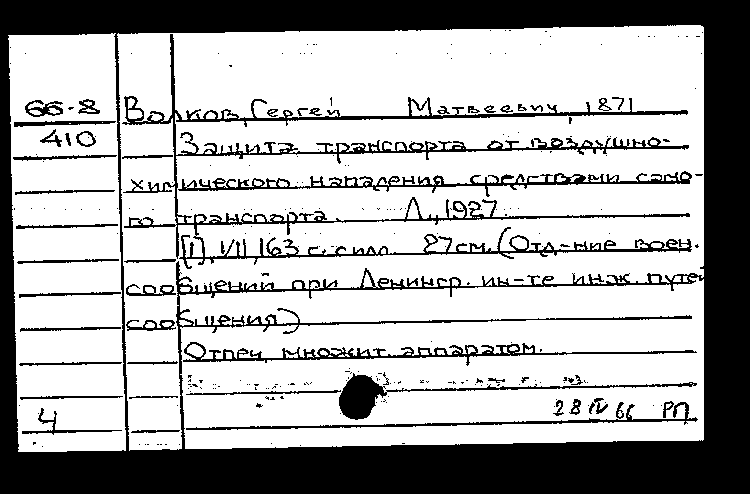 66-8 Волков, Сергей Матвеевич, 1871
410 Защита транспорта от воздушно-
химического нападения средствами само-
го транспорта. Л., 1927.
[1], VII, 163 с. с илл. 27 см. (Отд-ние воен.
сообщений при Ленингр. ин-те инж. путей
сообщения)
Отпеч. множит. аппаратом.
4 28 IV 66 РП